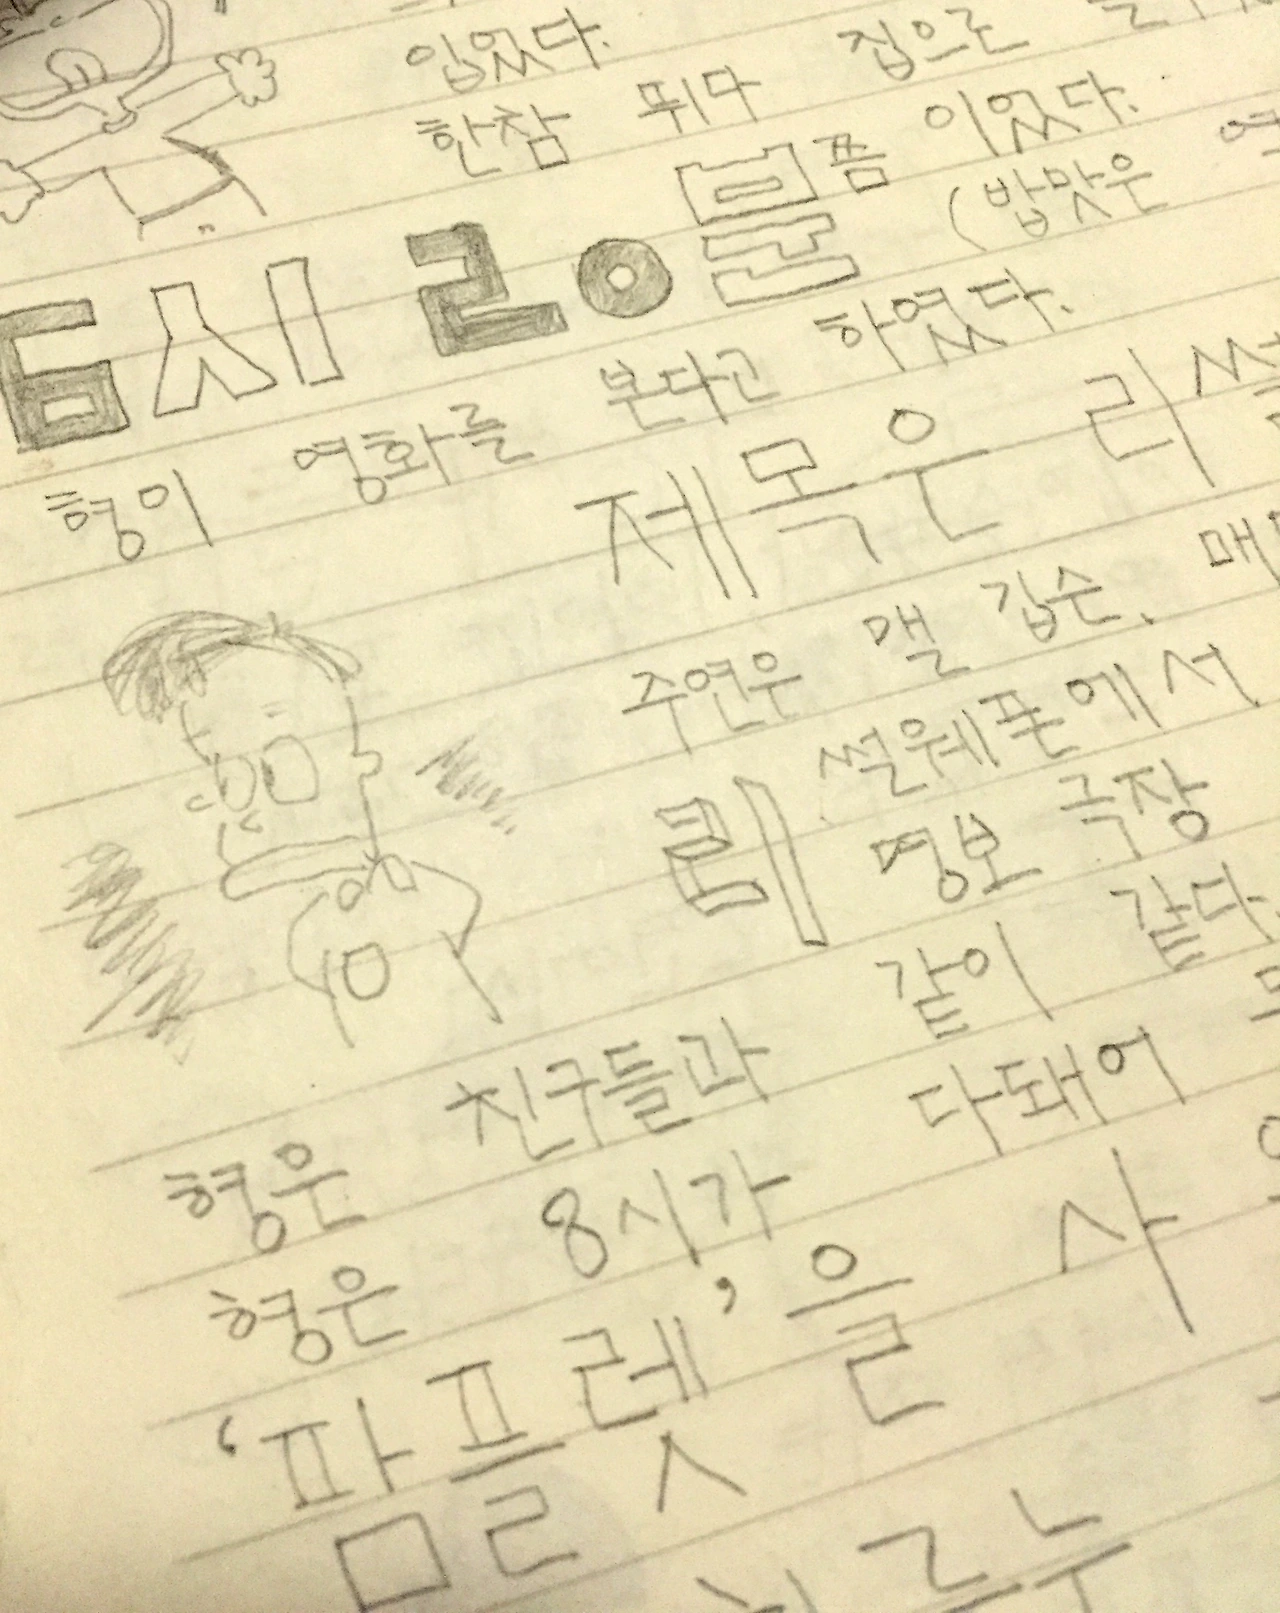 입었다.
한참 뛰다 집으로
6시 20분쯤 이었다.
(밥맛은
형이 영화를 본다고 하였다.
제목은 리썰
주연은 맬 깁슨,
리썰웨폰에서
명보 극장
형은 친구들과 같이 갔다.
형은 8시가 다돼어
‘팜플렛’을 사